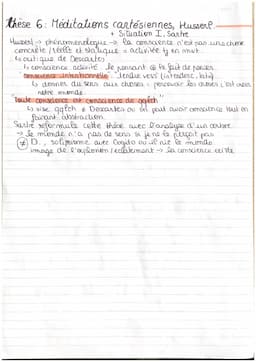 thèse 6 : Méditations cartésiennes, Husserl
+ Situation I, Sartre
Husserl → phénoménologie → la conscience n'est pas une chose
concrète / réelle et statique = activité tj en mvt
↳ critique de Descartes)
↳ conscience activité : le pensant ≠ le fait de penser
conscience intentionnelle "tendue vers"
↳ donner du sens aux choses : percevoir les choses, c'est
notre monde.
"Toute conscience est conscience de qqch"
↳ vise qqch ≠ Descartes où on peut avoir conscience tout en
faisant abstraction
Sartre reformule cette thèse avec l'analyse d'un
→ le monde n'a pas de sens si je ne le perçois pas
≠ D., solipsisme avec Cogito où il nie le monde
image de l'explosion / éclatement → la conscience